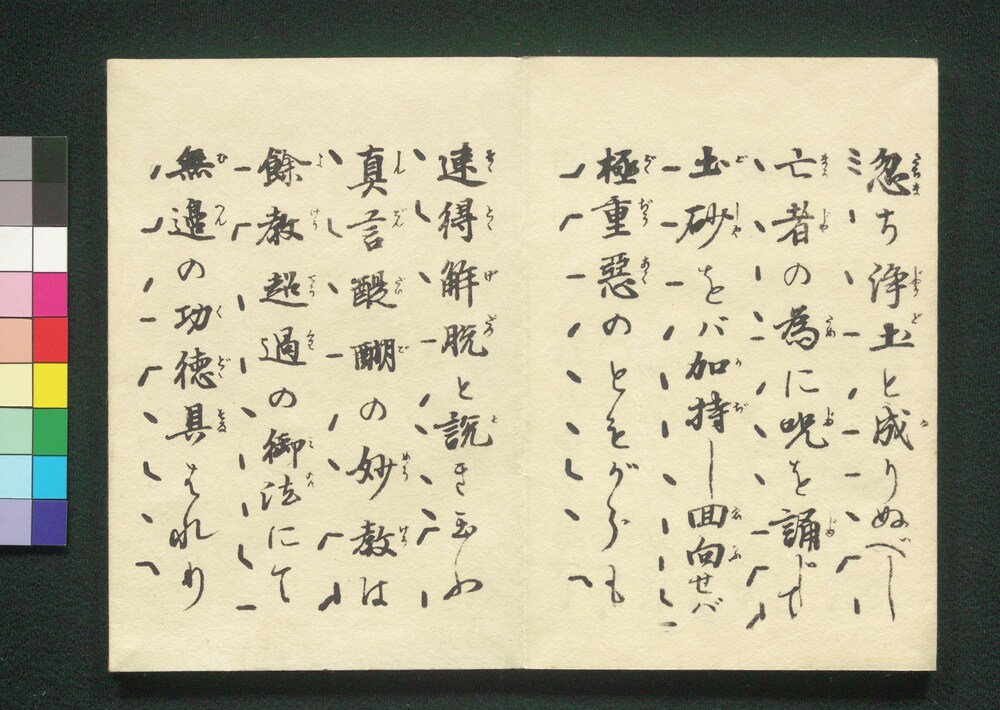 忽ち浄土と成りぬべし
亡者の為に呪を誦じて
土砂をバ加持し回向せバ
極重惡のともがらも
速得解脱と説き玉ふ
真言醍醐の妙教は
餘教超過の御法にて
無邊の功徳具はれり